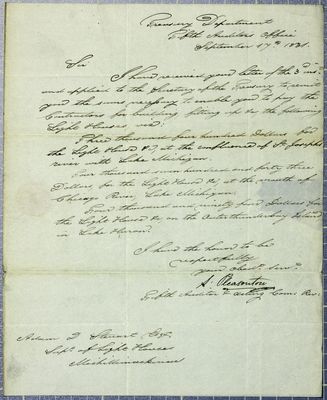 Treasury Department
Fifth Auditors Office
September 17th 1831.
Sir
I have received your letter of the 3d ins.
and applied to the Secretary of the Treasury to remit
you the sums necessary to enable you to pay the
Contractors for building fitting up &c the following
Light Houses, viz:
Three thousand four hundred Dollars for
the Light House &c at the confluence of St Josephs
river with Lake Michigan.
Four thousand seven hundred and forty three
Dollars, for the Light House &c at the mouth of
Chicago River, Lake Michigan.
Four thousand and ninety five Dollars for
the Light House &c on the Outer Thunder bay Island
in Lake Huron.
I have the honor to be
respectfully
your obedt. servt.
S. Pleasonton
Fifth Auditor & acting Coms. Rev.
Adam D Steuart Esq
Supt. of Light Houses
Michilimackinac